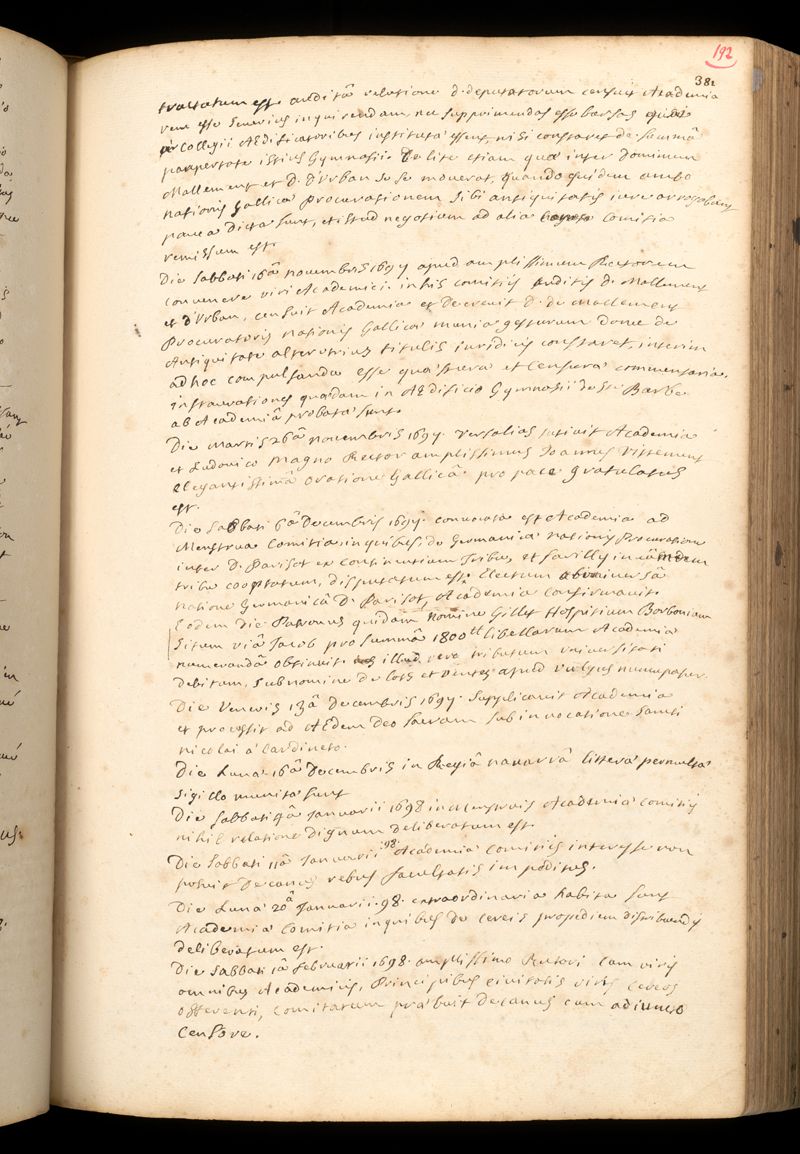 192
381
tractatum est. auditâ relatione d. deputatorum censuit Academia
rem esse serius inquirendam, nec supprimendas esse bursas quae
à Collegii AEdificatoribus institutae essent, nisi constaret de summâ
paupertate istius Gymnasii. De lite etiam quae inter Dominum
Mallement et D. D'Urban se se moverat, quando quidem ambo
nationis Gallicae Procurationem sibi antiquitatis iure arrogabant
pauca dicta sunt, et istud negotium ad alia Comitia
remissum est.
Die Sabbati 16â novembris 1697 apud amplissimum Rectorem
convenere viri Academici. in his comitiis auditis D. Mallement
et D'Urban, censuit Academia et Decrevit D. de Mallement
Procuratoris nationis Gallicae munia gesturum donec de
Antiquitate alterutrius titulis iuridicis constaret, interim
ad hoc compulsanda esse quae vera et Censera commentaria.
instaurationes quaedam in AEdificio Gymnasii de Ste Barbe
ab Academiâ probatae sunt.
Die Martis 26â novembris 1697. Versalias petivit Academia
et Ludovico Magno Rector amplissimus Ioannes Vittement
elegantissimâ oratione Gallicâ pro pace gratulatus
est.
Die Sabbati 6â Decembris 1697. convocata est Academia ad
Menstrua Comitia, in quibus de Germanicae nationis Procuratione
inter D. Parisot ex Continentium tribu, et Farilly in eâmdem
tribu cooptatum, disputatum est. Electum ab universâ
natione Germanicâ D. Parisot, Academia confirmavit.
Eodem die Patronus quidam nomine Gillet Hospitium Borbonium
situm viâ Jacob pro summâ 1800tt libellarum Academiae
numerandâ obtinuit. illud vero tributum universitati
debitum, sub nomine de lots et ventes apud vulgus nuncupatur.
Die Veneris 13â Decembris 1697. Supplicavit Academia
et processit ad AEdem Deo sacram sub invocatione Sancti
nicolai à Cardineto.
Die Lunae 16â Decembris in Regiâ navarrâ litterae permultae
sigillo munitae sunt
Die Sabbati 4â Januarii 1698 in menstruis Academiae comitiis
nihil relatione dignum deliberatum est.
Die Sabbati 11â Januarii 98. Academiae comitiis interesse non
potuit Decanus rebus facultatis impeditus.
Die Lunae 20â Januarii. 98. extraordinaria habita sunt
Academiae Comitia in quibus de cereis propediem distribuendis
deliberatum est.
Die Sabbati 1â Februarii 1698. amplissimo Rectori cum viris
omnibus Academicis, Principibus civitatis viris cereos
offerenti, comitatum praebuit decanus cum adiuncto
Censore.